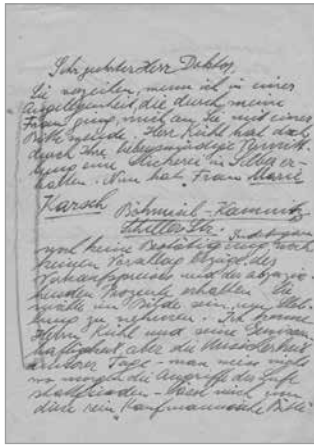 Sehr geehrter Herr Doktor,
Sie verzeihen, wenn ich in einer
Angelegenheit, die durch meine
Frau ging, mich an Sie mit einer
Bitte wende. Herr Kühl hat doch
durch Ihre liebenswürdige Vermitt-
lung eine Stickerei in Silber er-
halten. Nun hat Frau Marie
Karsch
Böhmisch-Kamnitz
Schiller Str.
noch keine Bestätigung, noch
keinen Vorschlag bezügl. des
Verkaufspreises und der abzuzie-
henden Prozente erhalten. Sie
müßte im Bilde sein, um Stel-
lung zu nehmen. Ich kenne
Herrn Kühl und seine Gewissen-
haftigkeit, aber die Unsicherheit
unserer Tage - man weiss nicht
wo morgen die Angriffe der Luft
stattfinden - lässt mich um
diese rein "Kaufmännische Bitte"